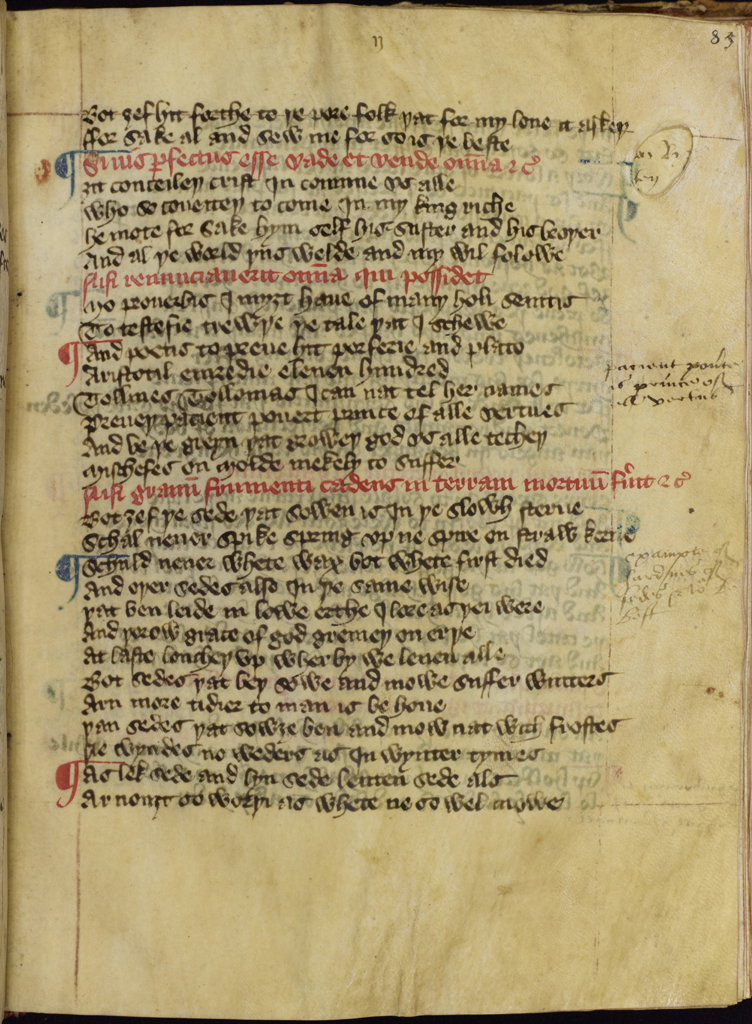 11
85
Bot ȝef hit forthe to þe pore folk þat for my loue it asken
ffor sake al and sew me for so is þe beste
Si uis perfectus esse vade et vende omnia &c
ȝit conceileþ crist In comune vs alle
Who so coueiteþ to come In my kyngriche
he mote for sake hym self his suster and his broþer
And al þe world þus welde and my wil folowe
Nisi renunciauerit omnia qui possidet
Mo prouerbis I myȝt haue of many holi seintis
To testefie trewþe þe tale þat I schewe
And poetis to preue hit porferie and plato
Aristotil enuedie eleuen hundred
Tollines Tollomas I can nat tel her names
Preueþ pacient pouert prince of alle vertues
And be þe greyn þat groweþ god vs alle techeþ
Myschefes on molde mekely to suffer
Nisi granum frumenti cadens in terram mortuum fuerit &c
Bot ȝef þe sede þat sowen is In þe slowh sterue
Schal neuer spike spring vp ne spire on straw kerne
Schuld neuer whete wax bot whete first died
And oþer sedes also In þe same wise
þat ben leide in lowe erthe I lore as þei were
And þorow grace of god greineþ on erþe
At laste loucheþ vp wherby we leuen alle
Bot sedes þat beþ sowe and mowe suffer winters
Arn more tidier to man is be houe
þan sedes þat sowȝe ben and mow nat with frostes
Ne wyndes no weders as In wynter tymes
As lek sede and lyn sede lenten sede als
Ar nouȝt so worþi as whete ne so wel mowe
pacient pouerte
is prince of
all vertus
example of